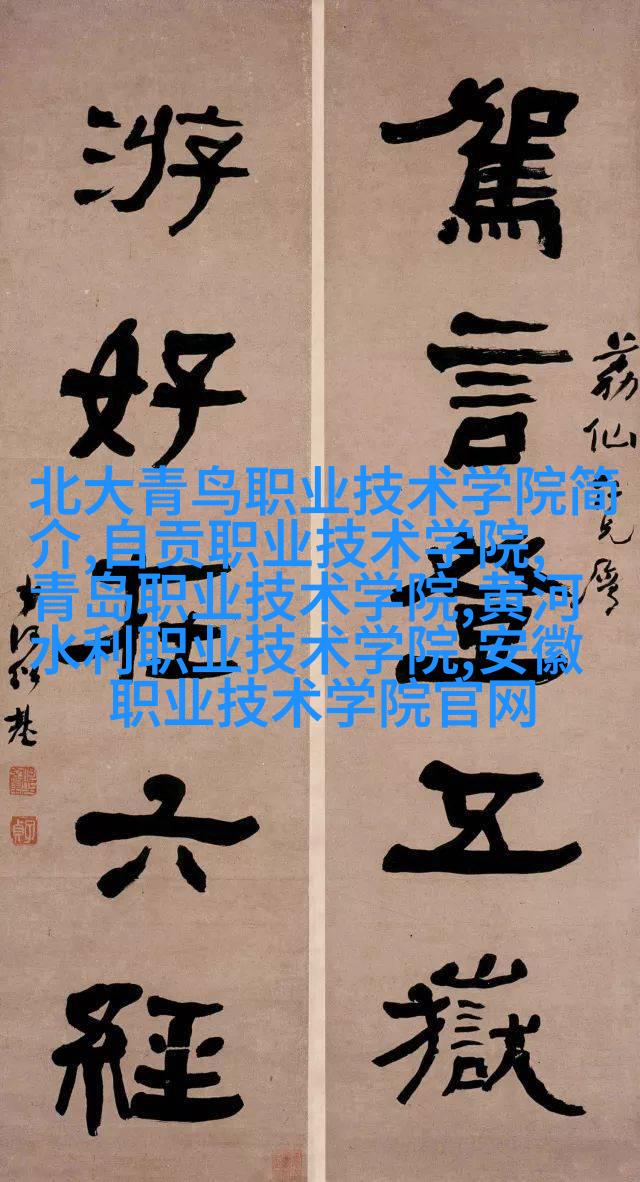 荔仙
駕言登五嶽
游好在六經
何紹基
子貞
北大青鸟职业技术学院简
介,自贡职业技术学院,
青岛职业技术学院,黄河
水利职业技术学院,安徽
职业技术学院官网